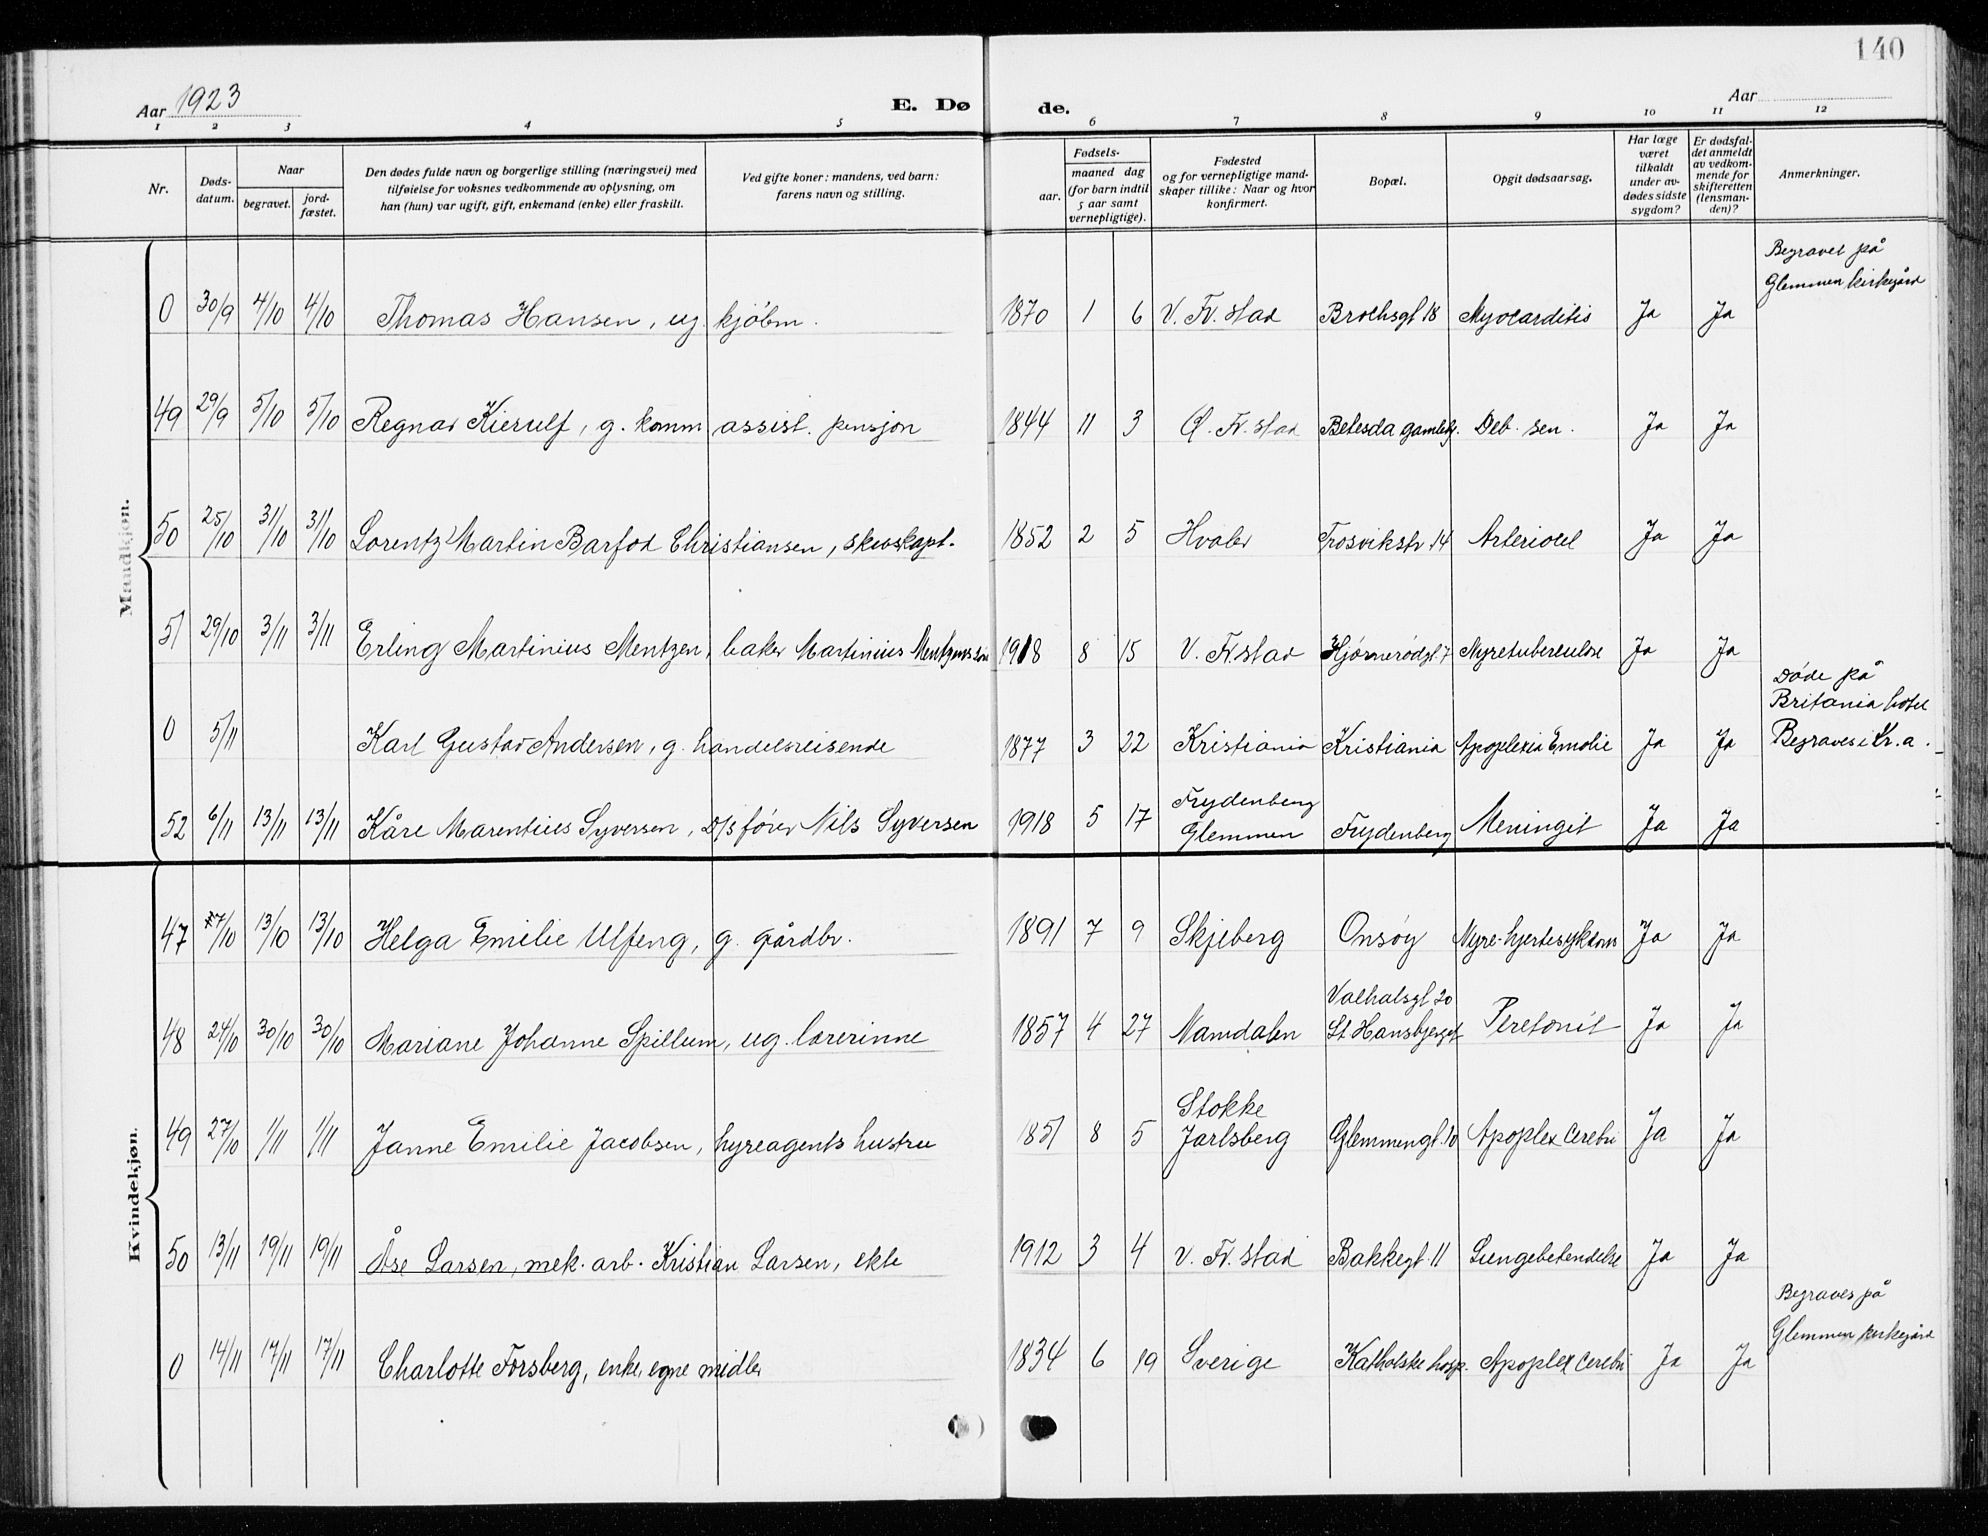 140
Aar 1923
E. Dø
de.
Aar
1 2 3 4 5 6 7 8 9 10 11 12
Nr.
Døds-
datum.
Naar
begravet.
jord-
fæstet.
Den dødes fulde navn og borgerlige stilling (næringsvei) med
tilføielse for voksnes vedkommende av oplysning, om
han (hun) var ugift, gift, enkemand (enke) eller fraskilt.
Ved gifte koner: mandens, ved barn:
farens navn og stilling.
Fødsels-
aar.
maaned dag
(for barn indtil
5 aar samt
vernepligtige).
Fødested
og for vernepligtige mand-
skaper tillike: Naar og hvor
konfirmert.
Bopæl.
Opgit dødsaarsag.
Har læge
været
tilkaldt
under av-
dødes sidste
sygdom?
Er dødsfal-
det anmeldt
av vedkom-
mende for
skifteretten
(lensman-
den)?
Anmerkninger.
Mandkjøn.
Begravet på
Glemmen kirkegård
0 30/9 4/10 4/10 Thomas Hansen, ug. kjøbm. 1870 1 6 V. Fr.stad Brochsgt 18 Myocarditis Ja Ja
49 29/9 5/10 5/10 Regnar Kierulf, g. komm assist. pensjon 1844 11 3 Ø. Fr.stad Betesda gamleh. Deb. sen. Ja Ja
50 25/10 31/10 31/10 Lorentz Martin Barfod Christiansen, skibskapt. 1852 2 5 Hvaler Trosvikstr 14 Ja Ja
51 29/10 3/11 3/11 Erling Martinius Mentzen, baker Martinius Mentzens søn 1918 8 15 V. Fr.stad Hjørnerødgt 7 Nyretuberculose Ja Ja
Døde på
Britania hotel
0 5/11 Karl Gustav Andersen, g. handelsreisende 1877 3 22 Kristiania Kristiania Apoplexia Emolie Ja Ja Begraves i Kr.a.
Frydenberg
52 6/11 13/11 13/11 Kåre Marentius Syversen, D/S fører Nils Syversen 1918 5 17 Glemmen Frydenberg Meningit Ja Ja
Kvindekjøn.
47 7/10 13/10 13/10 Helga Emilie Ulfeng, g. gårdbr. 1891 7 9 Skjeberg Onsøy Nyre-hjertesykdom Ja Ja
Valhalsgt 20
48 24/10 30/10 30/10 Mariane Johanne Spillum, ug. lærerinne 1857 4 27 Namdalen St Hansbjerget Peretonit Ja Ja
Stokke
49 27/10 1/11 1/11 Janne Emilie Jacobsen, hyreagents hustru 1851 8 5 Jarlsberg Glemmengt 10 Apoplex Cerebri Ja Ja
50 13/11 19/11 19/11 Åse Larsen, mek. arb. Kristian Larsen, ekte 1912 3 4 V. Fr.stad Bakkegt 11 Lungebetendelse Ja Ja
Begraves på
Glemmen kirkegård
0 14/11 17/11 17/11 Charlotte Forsberg, enke, egne midler 1834 6 19 Sverige Katholske hosp. Apoplex Cerebri Ja Ja